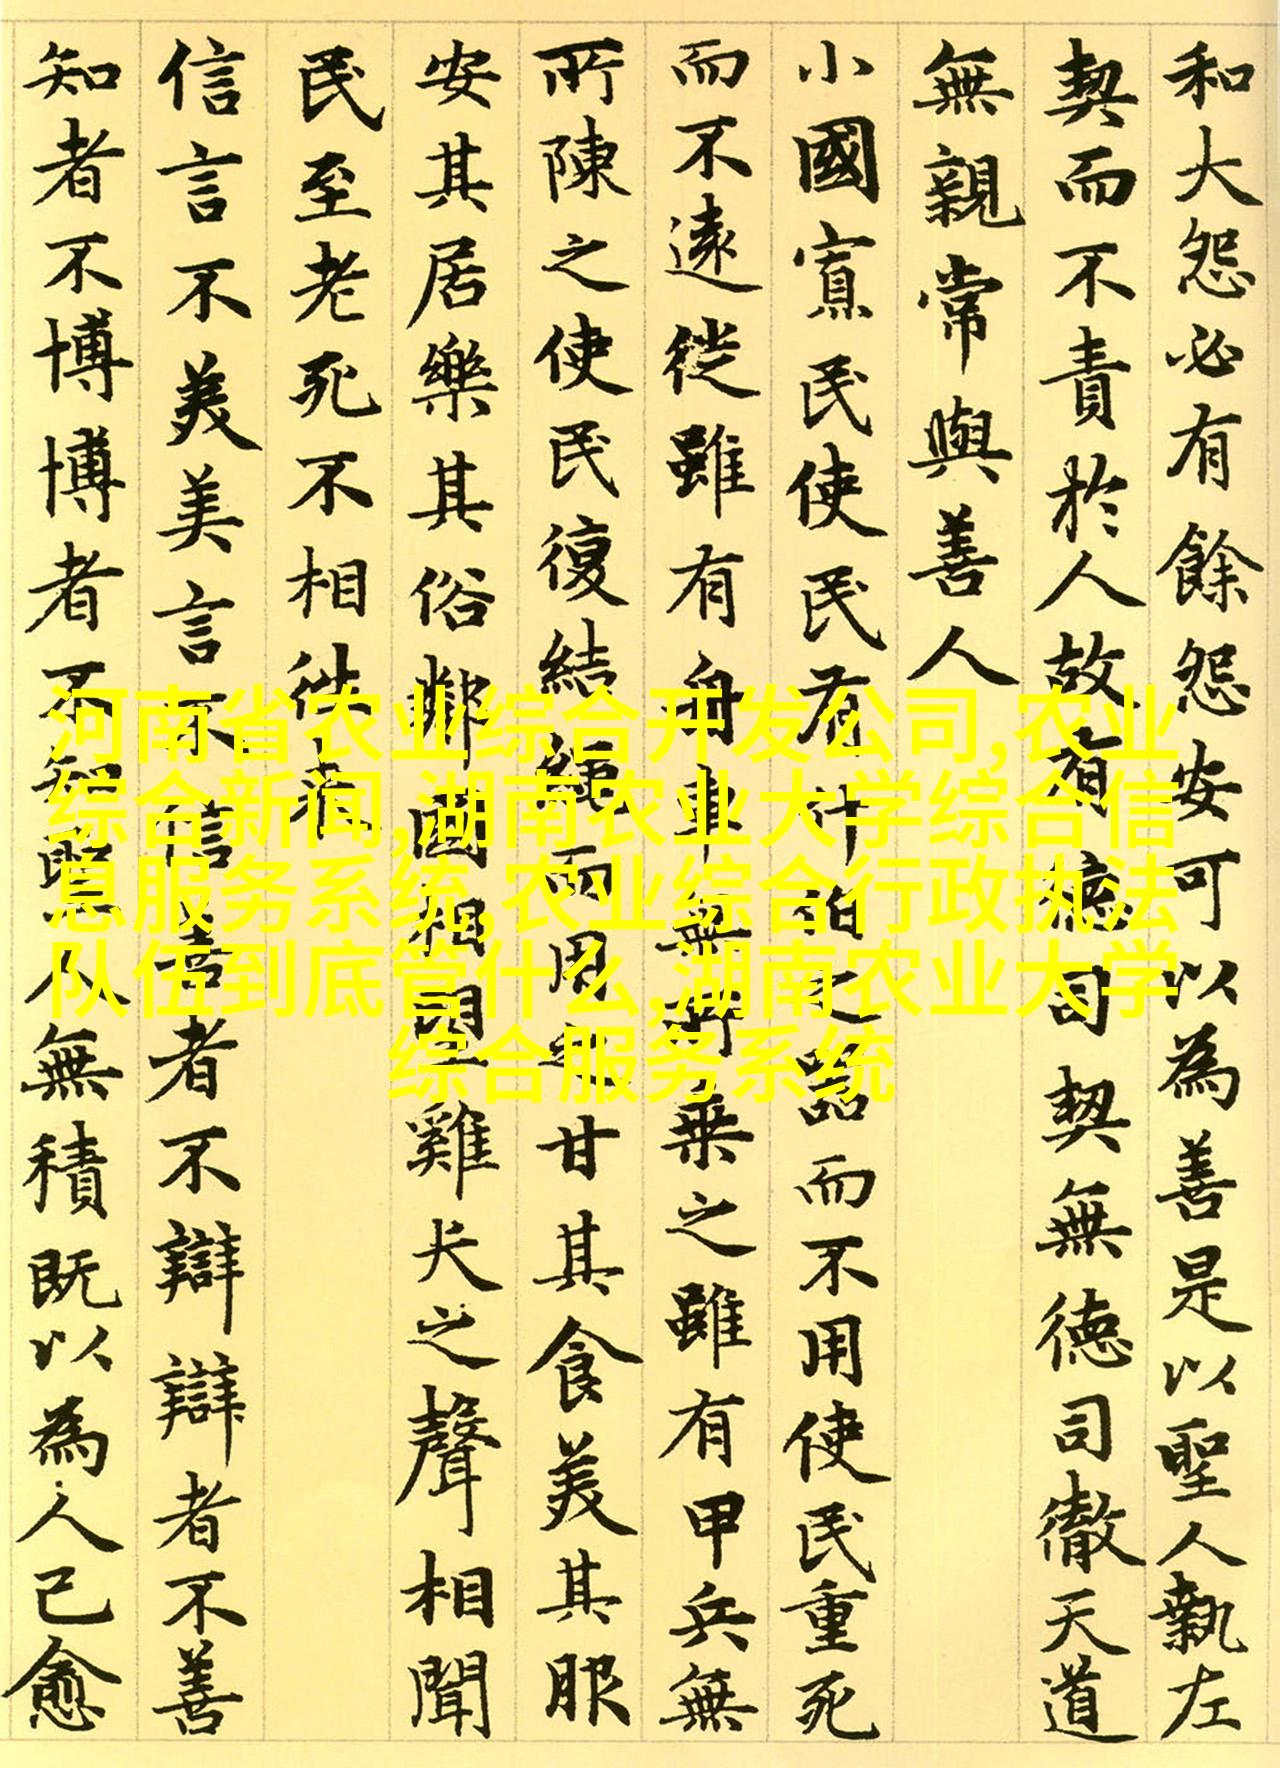 和大怨必有餘怨安可以為善是以聖人執左
契而不責於人故有德司契無德司徹天道
無親常與善人
小國寡民使民有什伯之器而不用使民重死
而不遠徙雖有舟車無所乗之雖有甲兵無
所陳之使民復結繩而用之甘其食美其服
安其居樂其俗鄰國相望雞犬之聲相聞
民至老死不相往来
信言不美美言不信善者不辯辯者不善
知者不博博者不知聖人無積既以為人己愈
河南省农业综合开发公司,农业
综合新闻,湖南农业大学综合信
息服务系统,农业综合行政执法
队伍到底管什么,湖南农业大学
综合服务系统